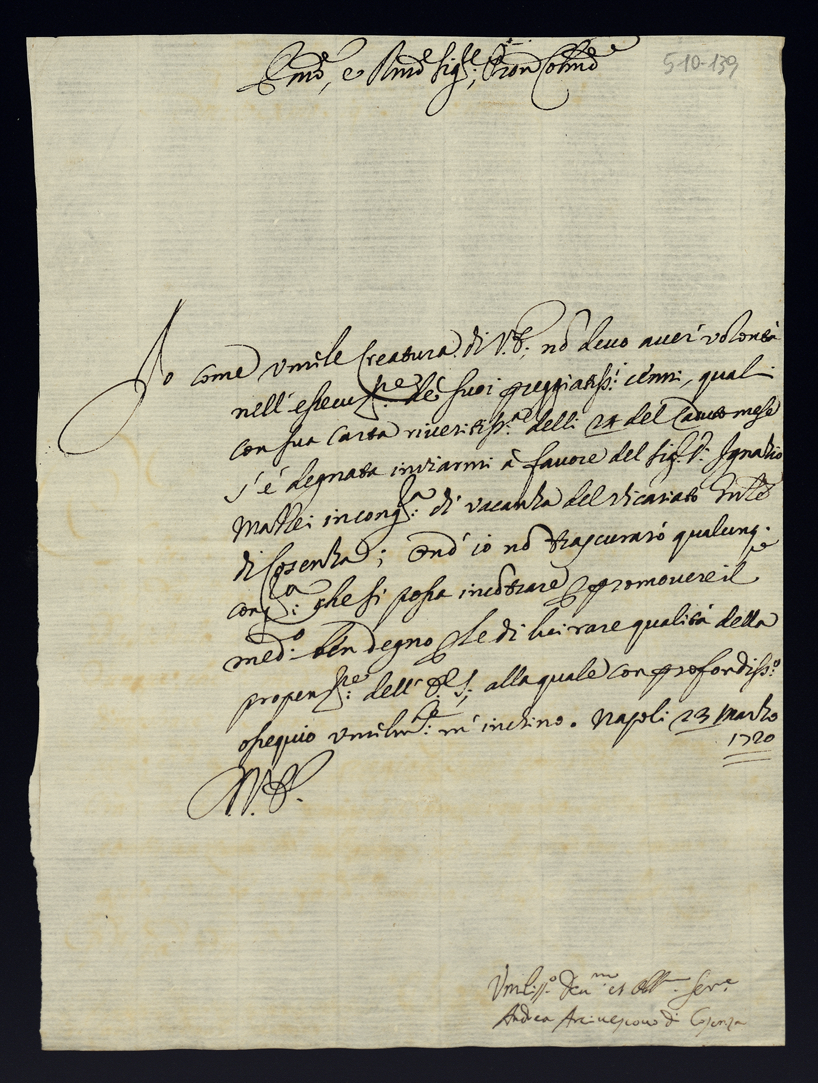 5-10-139
Em̄o, e Rmo Sig.re, Pron Colmo
Io come umile Creatura di V.E., nō devo aver' volontà
nell'esecuz.ne de suoi preggiatiss.i cenni, quali
con sua carta riveritiss.ma delli 24 del mese
s'è degnata inviarmi à favore del Sig.r D. Ignazio
Mattei in cong.a di vacanza del Vicariato
di Cosenza; ond' io nō trascurarò qualunq.e
cong.a che si possa incōtrare p promovere il
med.o ben degno p le di lui rare qualità della
propenz.ne dell' E. S., alla quale con profondiss.o
ossequio umilm.te m' inchino. Napoli 23 Marzo
1720
V.E.
Umiliss.o Dev.mo et Obb.mo Ser.e
Andrea Arcivescovo di Cosenza